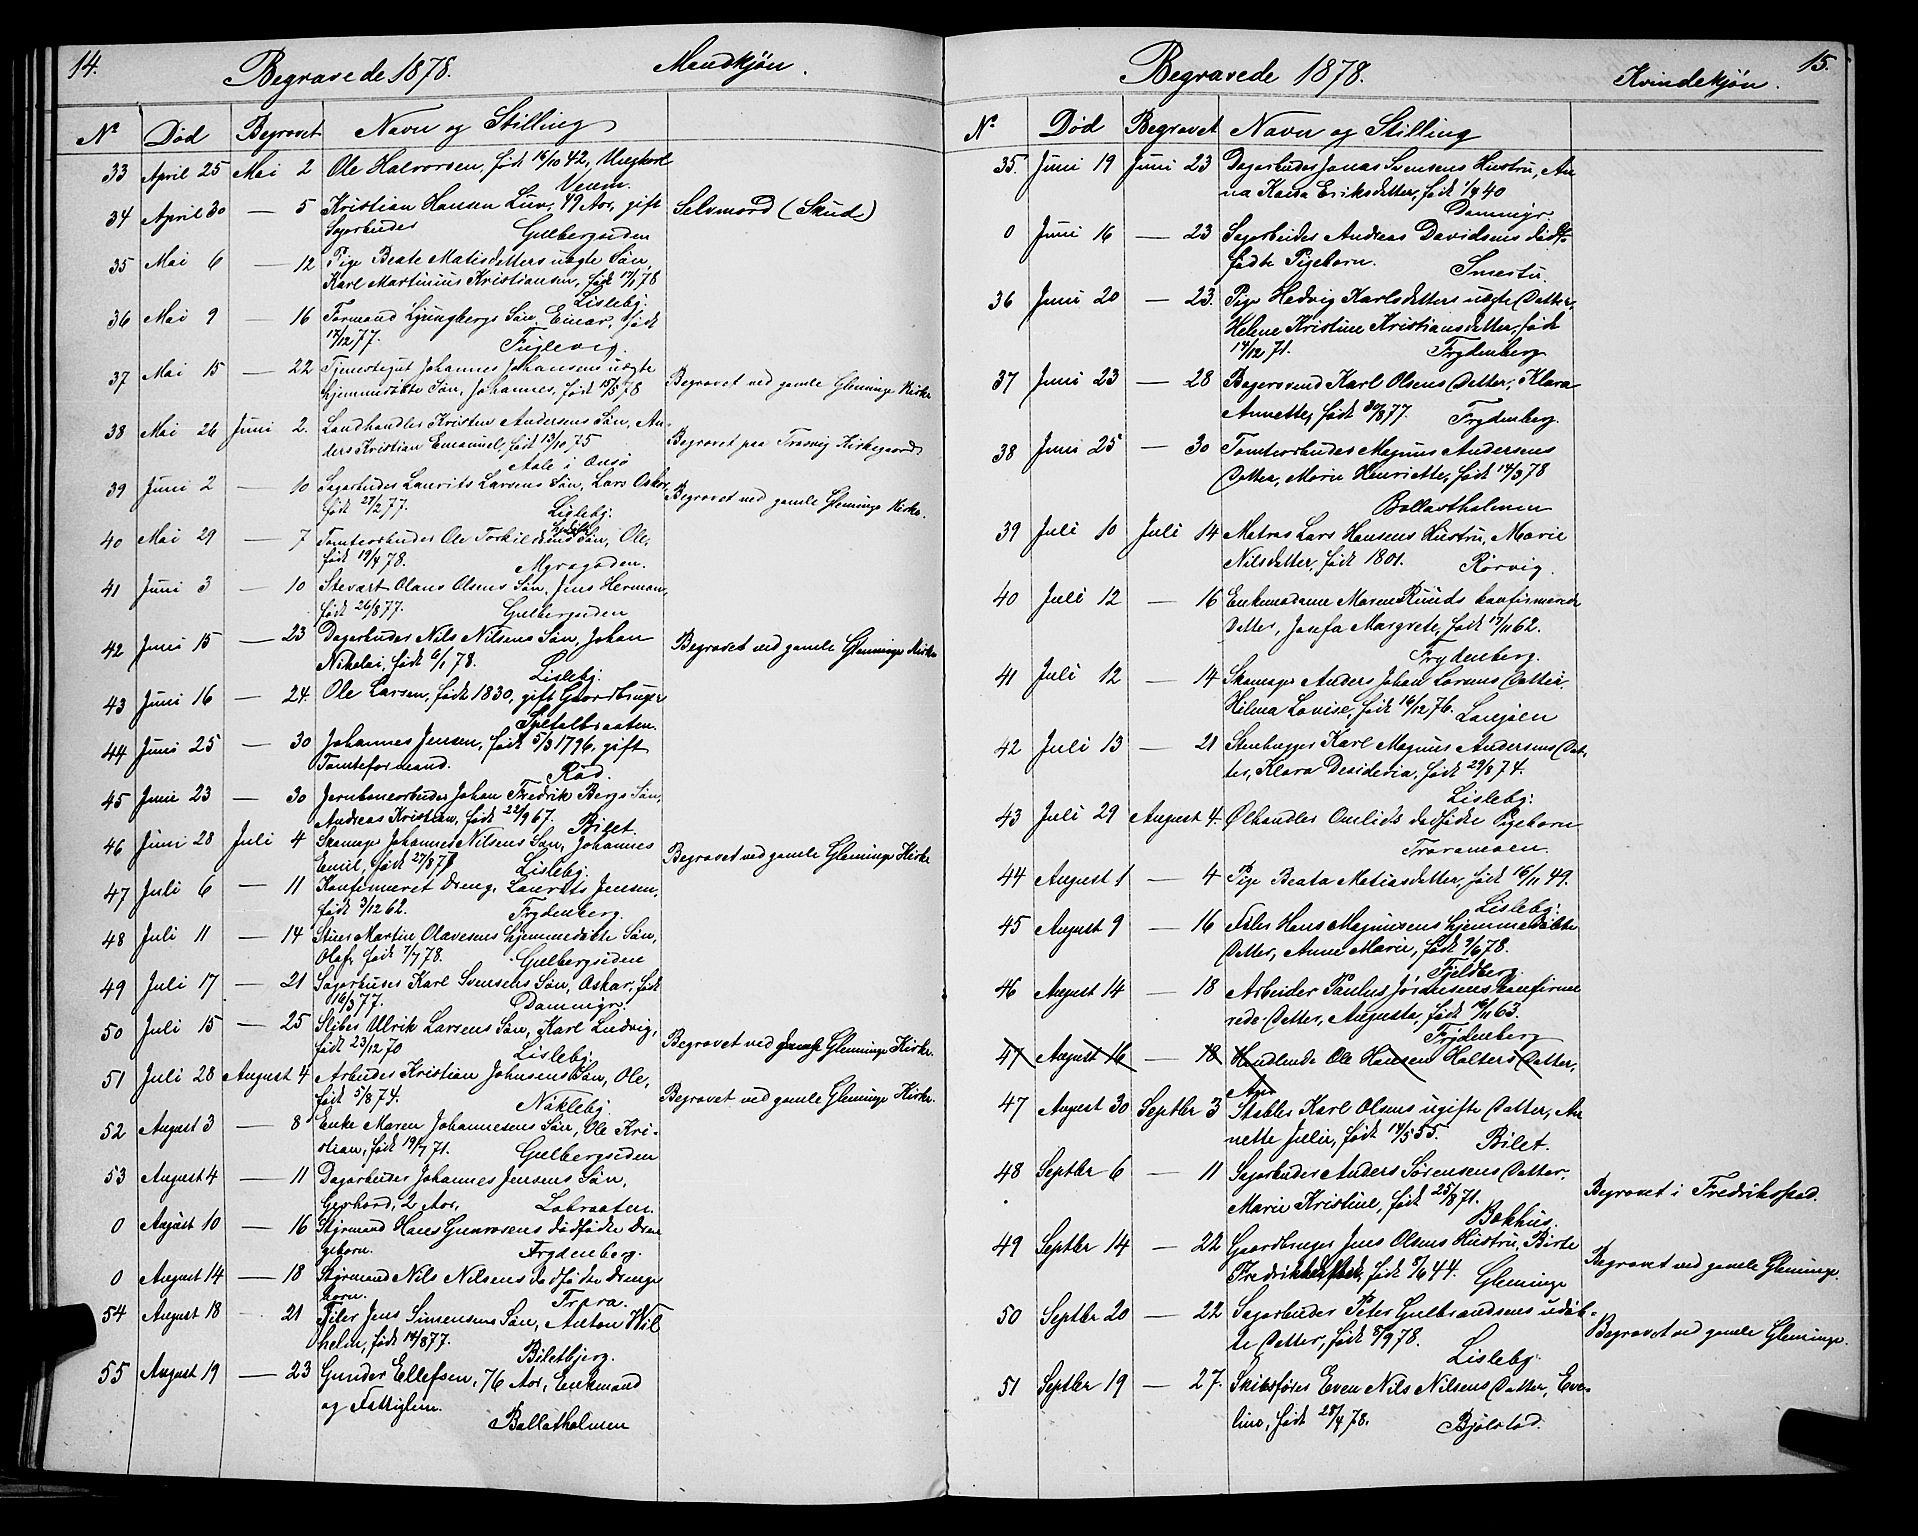 14.
Begravede 1878. Mandkjøn.
No Død Begravet Navn og Stilling
33 April 25 Mai 2 Ole Halvorsen, født 16/10 42,
Veum.
34 April 30 — 5 Kristian Hansen Lun, 49 Aar, gift Selvmord (Skud)
Sagarbeider Gulbergsiden
35 Mai 6 — 12 Pige Beate Matisdatters uægte Søn,
Karl Martinius Kristiansen, født 17/1 78
Lisleby.
36 Mai 9 — 16 Formand Ljungbergs Søn, Einar, født
17/12 77. Fuglevig.
37 Mai 15 — 22 Tjenestegut Johannes Johansens uægte
hjemmedøbte Søn, Johannes, født 15/5 78 Begravet ved gamle Glemminge Kirke
38 Mai 26 Juni 2. Landhandler Kristen Andersens Søn, An-
ders Kristian Emanuel, født 13/10 75 Begravet paa Trosvig Kirkegaard
Aale i Onsø
39 Juni 2 — 10 Sagarbeider Laurits Larsens Søn, Lars Oskar,
født 27/2 77. Lisleby. Begravet ved gamle Glemminge Kirke.
40 Mai 29 — 7 Tomtearbeider Ole Torkildsens hjdøbte Søn, Ole,
født 19/4 78. Myragaden.
41 Juni 3 — 10 Stevart Olaus Olsens Søn, Jens Herman,
født 26/8 77. Gulbergsiden
42 Juni 15 — 23 Dagarbeider Nils Nilsens Søn, Johan
Nikolai, født 6/1 78. Lisleby. Begravet ved gamle Glemminge Kirke
43 Juni 16 — 24. Ole Larsen, født 1830, gift Gaardbruger
Spetalbraaten.
44 Juni 25 — 30 Johannes Jensen, født 5/3 1796, gift
Tomteformand. Rød.
45 Juni 23 — 30 Jernbanearbeider Johan Fredrik Bergs Søn,
Andreas Kristian, født 22/9 67. Bilet.
46 Juni 28 Juli 4 Skomager Johannes Nilsens Søn, Johannes
Emil, født 27/8 77 Lisleby. Begravet ved gamle Glemminge Kirke
47 Juli 6 — 11 Konfirmeret Dreng, Laurits Jensen,
født 3/12 62. Frydenberg.
48 Juli 11 — 14 Stuer Martin Olavesens hjemmedøbte Søn,
Olaf, født 7/7 78. Gulbergsiden
49 Juli 17 — 21 Sagarbeider Karl Svensens Søn, Oskar, født
16/3 77. Dammyr.
50 Juli 15 — 25 Sliber Ulrik Larsens Søn, Karl Ludvig,
født 23/12 70 Lisleby. Begravet ved gamle Glemminge Kirke.
51 Juli 28 August 4 Arbeider Kristian Johnsens Søn, Ole,
født 5/8 74. Nøkleby. Begravet ved gamle Glemminge Kirke.
52 August 3 — 8 Enke Maren Johannesens Søn, Ole Kri-
stian, født 19/7 71. Gulbergsiden
53 August 4 — 11 Dagarbeider Johannes Jensens Søn,
Gerhard, 2 Aar, Labraaten.
0 August 10 — 16 Styrmand Hans Gunrosens dødfødte Dren
gebarn. Frydenberg.
0 August 14 — 18 Styrmand Nils Nilsens dødfødte Drenge
barn. Trara.
54 August 18 — 21 Filer Jens Simensens Søn, Anton Wil
helm, født 14/8 77.
Biletbjerg.
55 August 19 — 23 Gunder Ellefsen, 76 Aar, Enkmand
og Fattiglem.
Ballatholmen
15.
Begravede 1878. Kvindekjøn.
No Død Begravet Navn og Stilling
35. Juni 19 Juni 23 Dagarbeider Jonas Svensens Hustru, An
na Kaisa Eriksdatter, født 1/9 40
Dammyr.
0 Juni 16 — 23 Sagarbeider Andreas Davidsens død-
fødte Pigebarn. Smertu
36 Juni 20 — 23 Pige Hedvig Karlsdatters uægte Datter,
Helene Kristine Kristiansdatter, født
14/12 71. Frydenberg
37 Juni 23 — 28 Bagersvend Karl Olsens Datter, Klara
Annette, født 30/8 77. Frydenberg.
38 Juni 25 — 30 Tomtearbeider Magnus Andersens
Datter, Marie Henriette, født 14/3 78
Ballastholmen
39 Juli 10 Juli 14 Matros Lars Hansens Hustru, Marie
Nilsdatter, født 1801. Rørvig.
40 Juli 12 — 16 Enkemadame Maren Ruuds konfirmerede
Datter, Josefa Margrete, født 17/11 62.
Frydenberg.
41 Juli 12 — 14 Skomager Anders Johan Larsens Datter,
Hilma Lovise, født 16/12 76. Lanejøen
42 Juli 13 — 21 Stenhugger Karl Magnus Andersens Dat-
ter, Klara Desideria, født 29/8 74.
Lisleby.
43 Juli 29 August 4. Ølhandler Omlids dødfødte Pigebarn
Traramoen.
44 August 1 — 4 Pige Beata Matiasdatter, født 16/11 49.
Lisleby.
45 August 9 — 16 Filer Hans Magnusens hjemmedøbte
Datter, Anne Marie, født 9/6 78.
Fjeldberg.
46 August 14 — 18 Arbeider Paulus Jørensens konfirme
rede Datter, Augusta, født 16/11 63.
Frydenberg
47 August 16 — 18 Handlende Ole Hansen Holters Datter,
Agn
47 August 30 Septbr 3 Stabler Karl Olsens ugifte Datter, An
nette Julie, født 14/5 55. Bilet.
48 Septbr 6 — 11 Sagarbeider Anders Sørensens Datter,
Marie Kristine, født 25/8 71. Begravet i Fredriksstad.
Bakhus.
49 Septbr 14 — 22 Gaardbruger Jens Olsens Hustru, Birte
Fredriksdatter, født 8/6 44. Glemminge Begravet ved gamle Glemminge.
50 Septbr 20 — 22 Sagarbeider Peter Gulbrandsens udøb-
te Datter, født 8/9 78. Begravet ved gamle Glemminge.
Lisleby.
51 Septbr 19 — 27. Skibsfører Even Nils Nilsens Datter, Eve-
line, født 28/4 78. Bjølstad.